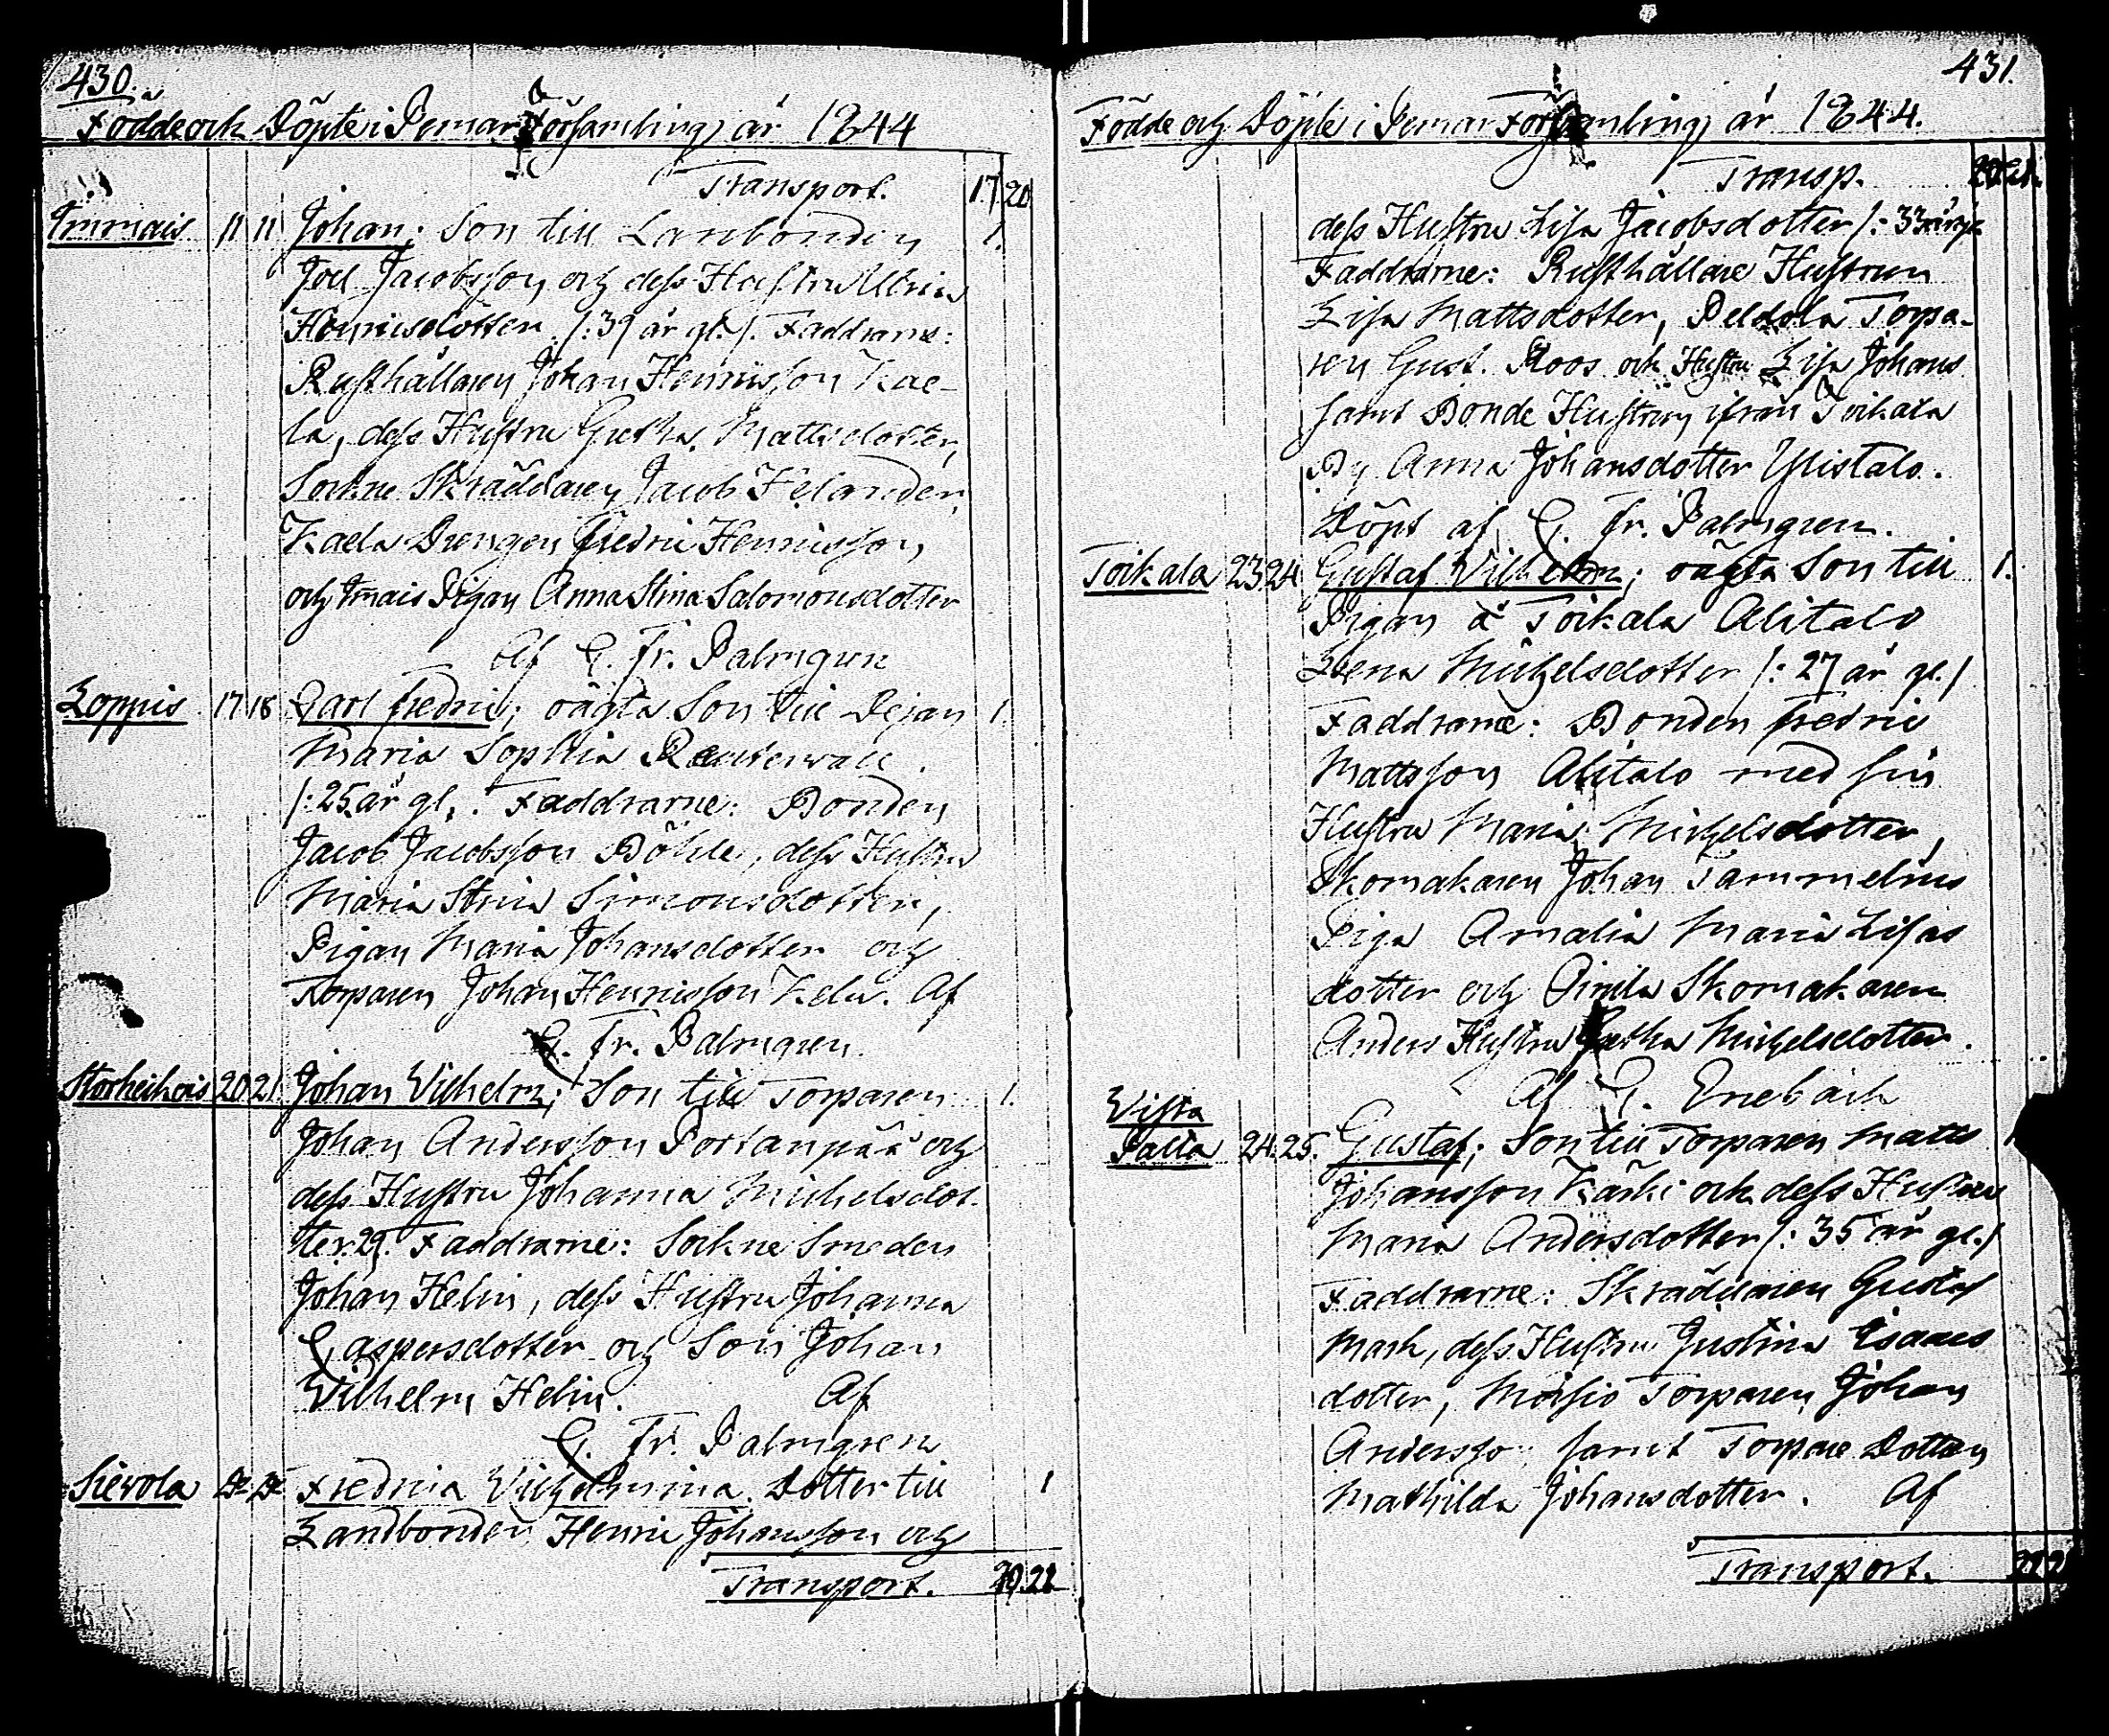 430.
Födde och Döpte i Pemar Församling år 1844
Transport. 17 20
Immais 11 11 Johan; Son till Lanbonden 1.
Joel Jacobsson och dess Hustru Ulrica
Henricsdotter /: 39 år gl. /. Faddrarne:
Rusthållaren Johan Henricsson Kae-
la, dess Hustru Gretha Mattsdotter,
Sockne Skräddaren Jacob Felander,
Kaela Drengen Fredric Henricsson
och Imais Pigan Anna Stina Salomonsdotter
Af C. Fr. Palmgren
Loppis 17 18 Carl Fredric; oägta Son till Pejan 1.
Maria Sophia Reuterwall
/: 25 år gl. . Faddrarne: Bonden
Jacob Jacobsson Böhle, dess Hustru
Maria Stina Simonsdotter,
Pigan Maria Johansdotter och
Torparen Johan Henricsson Kela. Af
C. Fr. Palmgren.
Storheikois 20 21 Johan Wilhelm; Son till Torparen 1.
Johan Andersson Portanpää och
dess Hustru Johanna Michelsdot-
ter 29. Faddrarne: Sockne Smeden
Johan Helin, dess Hustru Johanna
Caspersdotter och Son Johan
Wilhelm Helin. Af
C. Fr. Palmgren
Sievola Fredrica Wilhelmina. Dotter till 1
Landbonden Henric Johansson och
Transport. 20. 21
431.
Födde och Döpte i Pemar Församling år 1844.
Transp. 20 21.
dess Hustru Lisa Jacobsdotter /: 33 årig
Faddrarne: Rusthållare Hustrun
Lisa Mattsdotter, Peldola Torpa-
ren Gust. Roos och Hustru Lisa Johans
samt Bonde Hustrun ifrån Toikala
By Anna Johansdotter Ylistalo.
Döpt af C. Fr. Palmgren.
Toikala 23 24 Gustaf Wilhelm; oägta Son till 1.
Pigan å Toikala Alitalo
Lena Michelsdotter /: 27 år gl. /
Faddrarne: Bonden Fredric
Mattsson Alitalo med sin
Hustru Maria Michelsdotter,
Skomakaren Johan Tammelin
Piga Amalia Maria Lisas
dotter och Skomakaren
Anders Hustru Gretha Michelsdotter.
Af C. Enebäck
Wista
Palta 24. 25. Gustaf; Son till Torparen Matts
Johansson Karhi och dess Hustru
Maria Andersdotter /: 35 år gl. /
Faddrarne: Skräddaren Gustaf
Mark, dess Hustru Justina Isaacs
dotter, Moisio Torparen Johan
Andersso samt Torpare Dottren
Mathilda Johansdotter. Af
Transport.